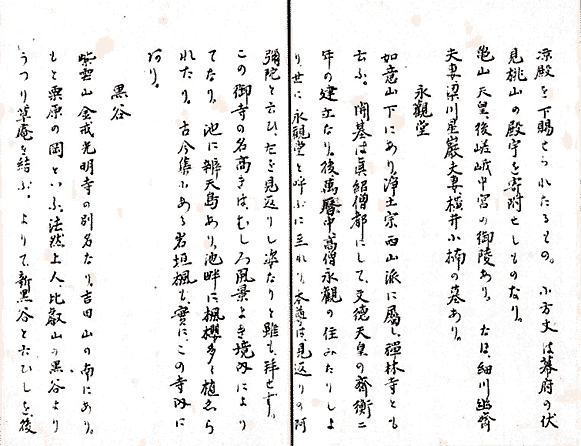 凉殿を下賜せられたるもの。小方丈は幕府の伏
見桃山の殿宇を寄附せしものなり。
亀山天皇後嵯峨中宮の御陵あり。又は、細川幽齋
夫妻梁川星巖夫妻横井小楠の墓あり。
永觀堂
如意山下にあり、浄土宗西山派に屬し、禪林寺とも
云ふ。開基は眞紹僧都にして、文徳天皇の齊衡二
年の建立なり。後萬暦中高僧永觀の住みたりしよ
り、世に永觀堂と呼ぶに至れり。本尊は、見返りの阿
彌陀と云ひて、を見返りし姿なりと雖も、拝せず。
この御寺の名高きは、むしろ風景よき境内により
てなり。池に辨天島あり、池畔に楓櫻多く植ゑら
れたり。古今集にある岩垣楓も、實に、この寺内に
あり。
黒谷
紫雲山金戒光明寺の別名なり。吉田山の南にあり。
もと栗原の岡といふ。法然上人、比叡山の黒谷より
うつり草庵を結ぶ。よりて新黒谷と云ひしを、後